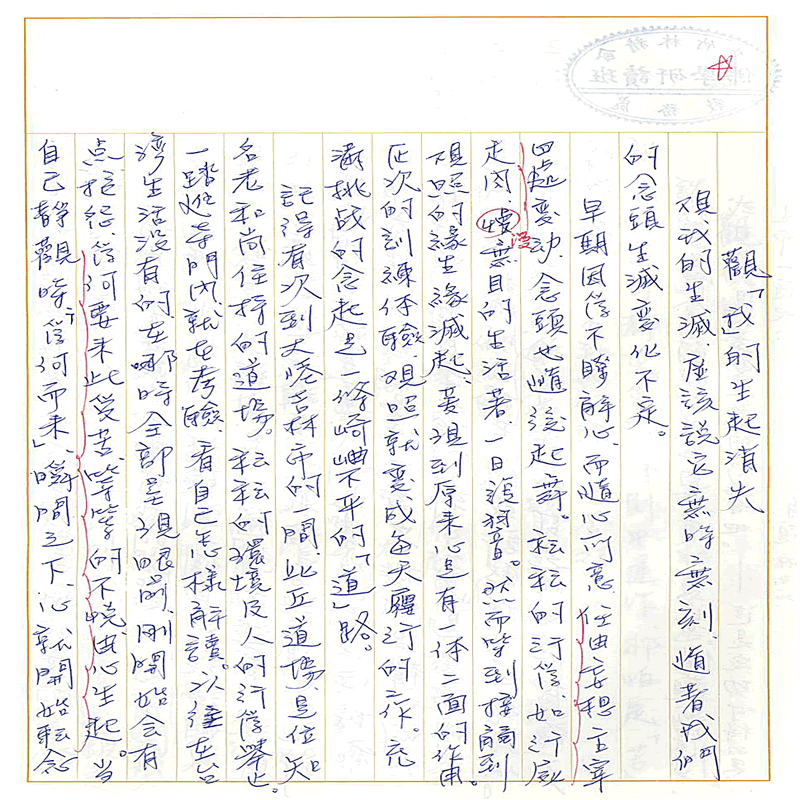 竹林精舍
佛學研讀班
教務處
觀「我的生起消失
觀我的生滅,應該說它無時無刻,隨著我們
的念頭生滅變化不定。
早期因為不瞭解心,而隨心所意,任由妄想主宰
四處變動,念頭也隨後起舞。耘耘的行為,如行屍
走肉,慢無目的生活著,一日復一日。然而學到接觸到
漫
觀照的緣生緣滅起,發現到原來心是有一体二面的作用。
在次的訓練体驗,觀照就變成每天履行的工作。充
滿挑战的念起是一條崎嶇不平的「道」路。
記得有次到大塔吉林市的一間,比丘道場,是位知
名老和尚住持的道場。耘耘的環境及人的行為舉止。
一踏進寺門內就在考驗,看自己怎樣解讀。以往在台
灣生活沒有的,在哪時全部呈現眼前,剛開始会有
点抱怨,為何要來此受苦,等等的不悅由心生起。當
自己靜觀時,「為何而來」,瞬間之下,心就開始転念